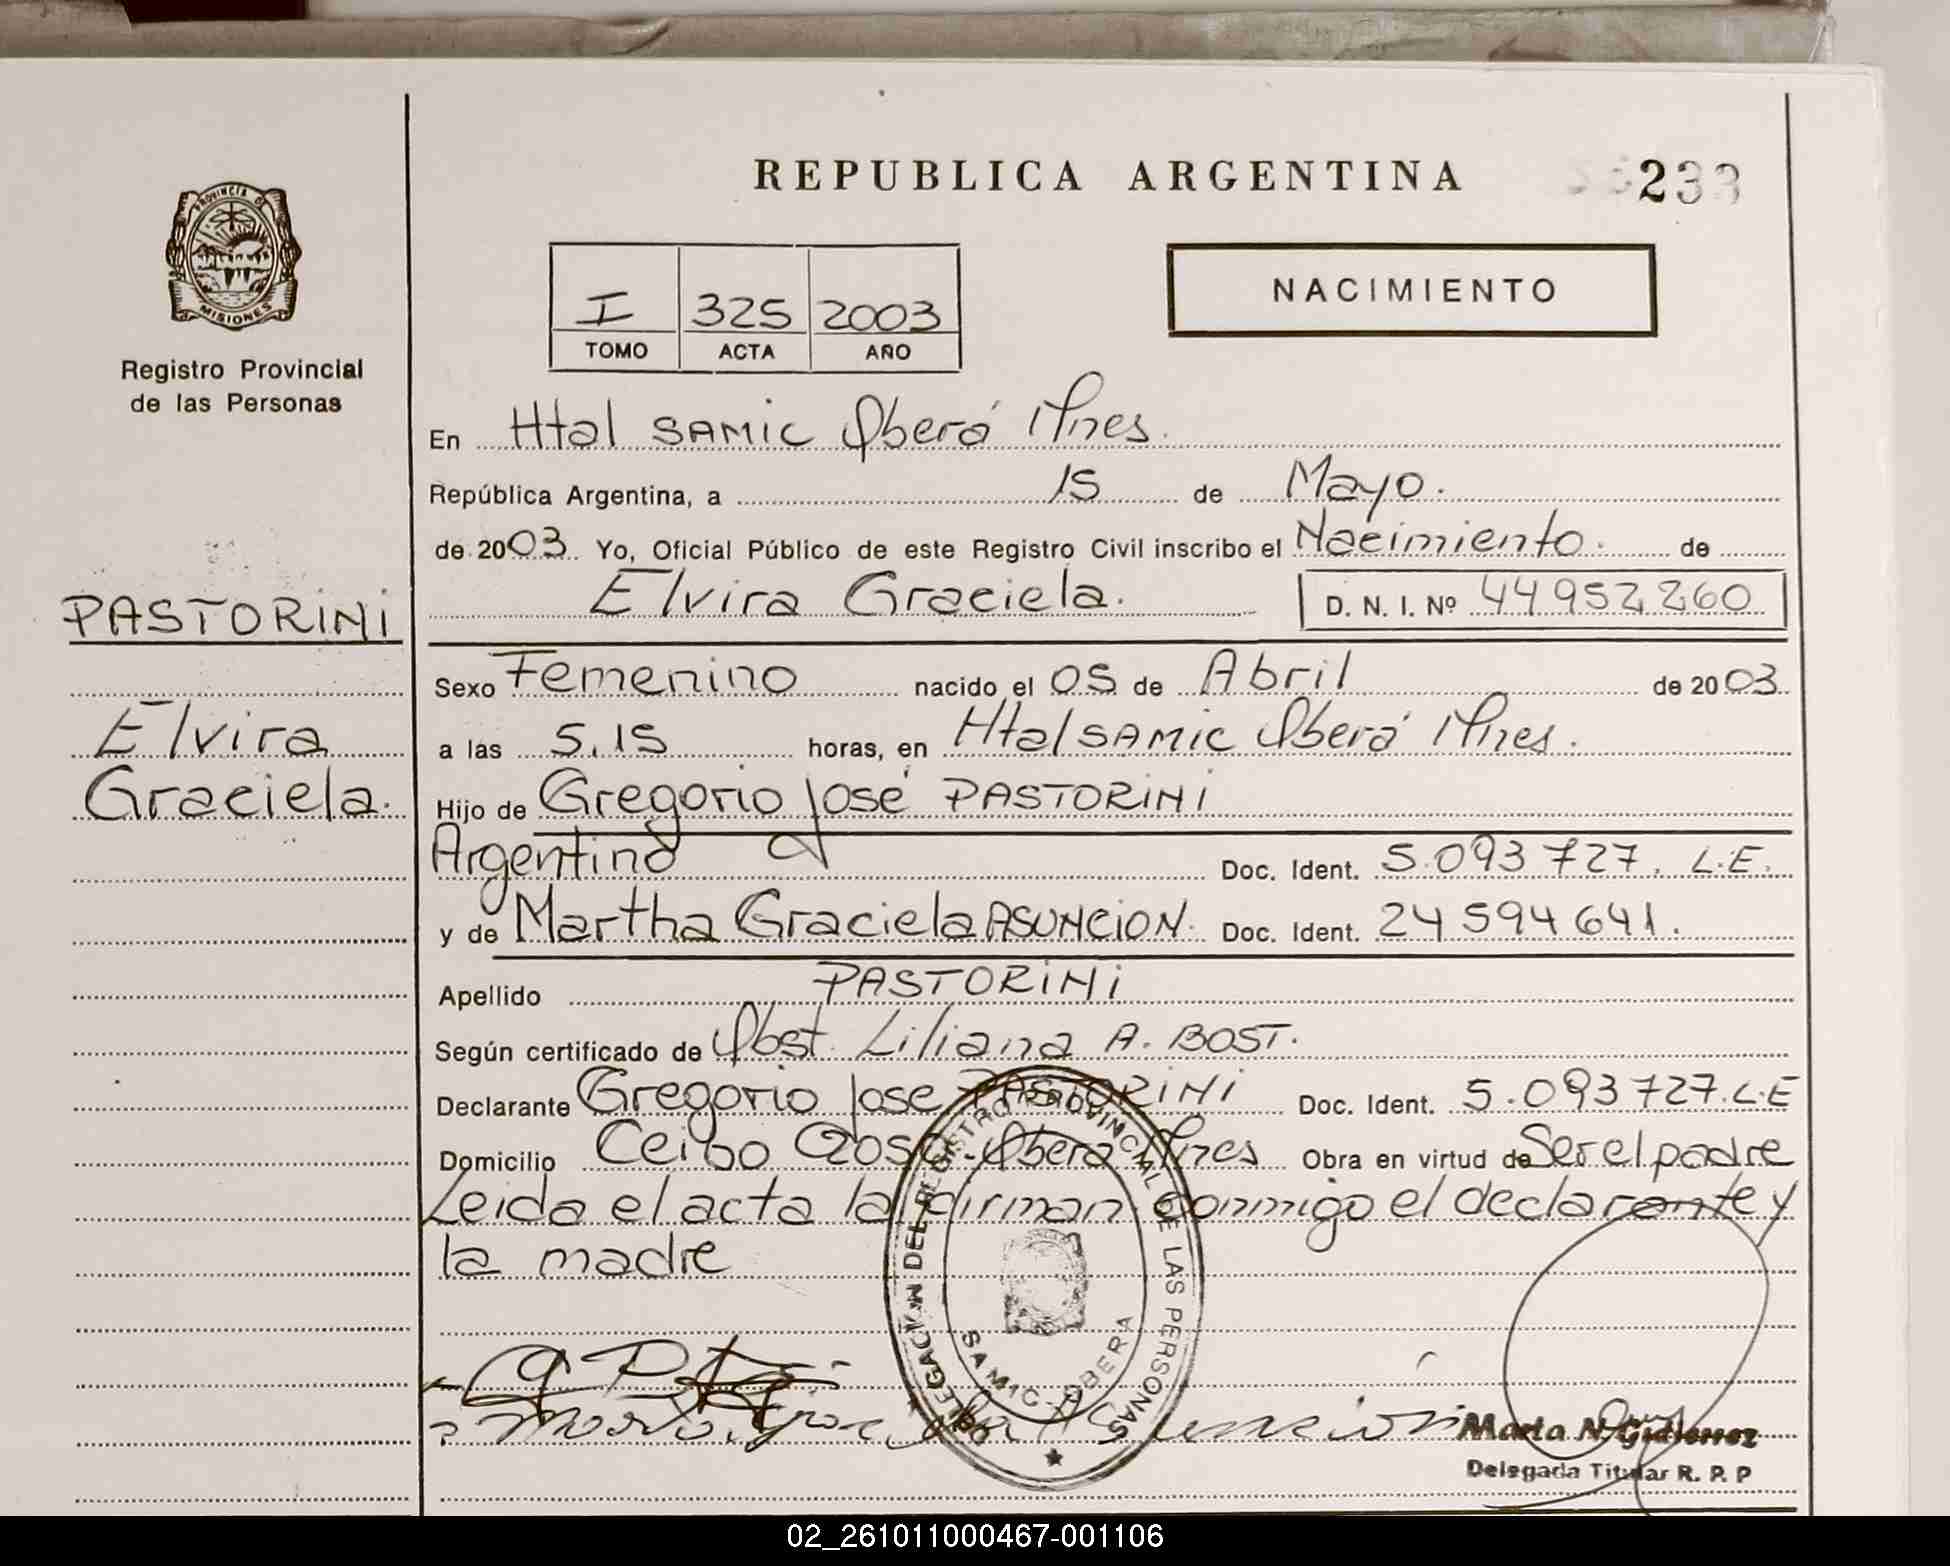 REPUBLICA ARGENTINA
233
PROVINCIA DE
MISIONES
Registro Provincial
de las Personas
I 325 2003
TOMO ACTA AÑO
NACIMIENTO
En Htal SAMIC Oberá Mnes.
República Argentina, a 15 de Mayo.
de 2003. Yo, Oficial Público de este Registro Civil inscribo el Nacimiento. de
Elvira Graciela. D. N. I. Nº 44952260
PASTORINI
Elvira
Graciela.
Sexo Femenino nacido el 05 de Abril de 2003
a las 5.15 horas, en Htal SAMIC Oberá Mnes.
Hijo de Gregorio José PASTORINI
Argentino Doc. Ident. 5.093727. L.E.
y de Martha Graciela ASUNCION. Doc. Ident. 24594641.
Apellido PASTORINI
Según certificado de Obst. Liliana A. BOST.
Declarante Gregorio Jose PASTORINI Doc. Ident. 5.093727. L.E
Domicilio Ceibo 2050. Oberá Mnes Obra en virtud de Ser el padre
Leida el acta la firman conmigo el declarante y
la madre
DELEGACION DEL REGISTRO PROVINCIAL DE LAS PERSONAS
SAMIC OBERA
Marta N. Gutierrez
Delegada Titular R. P. P
02_261011000467-001106